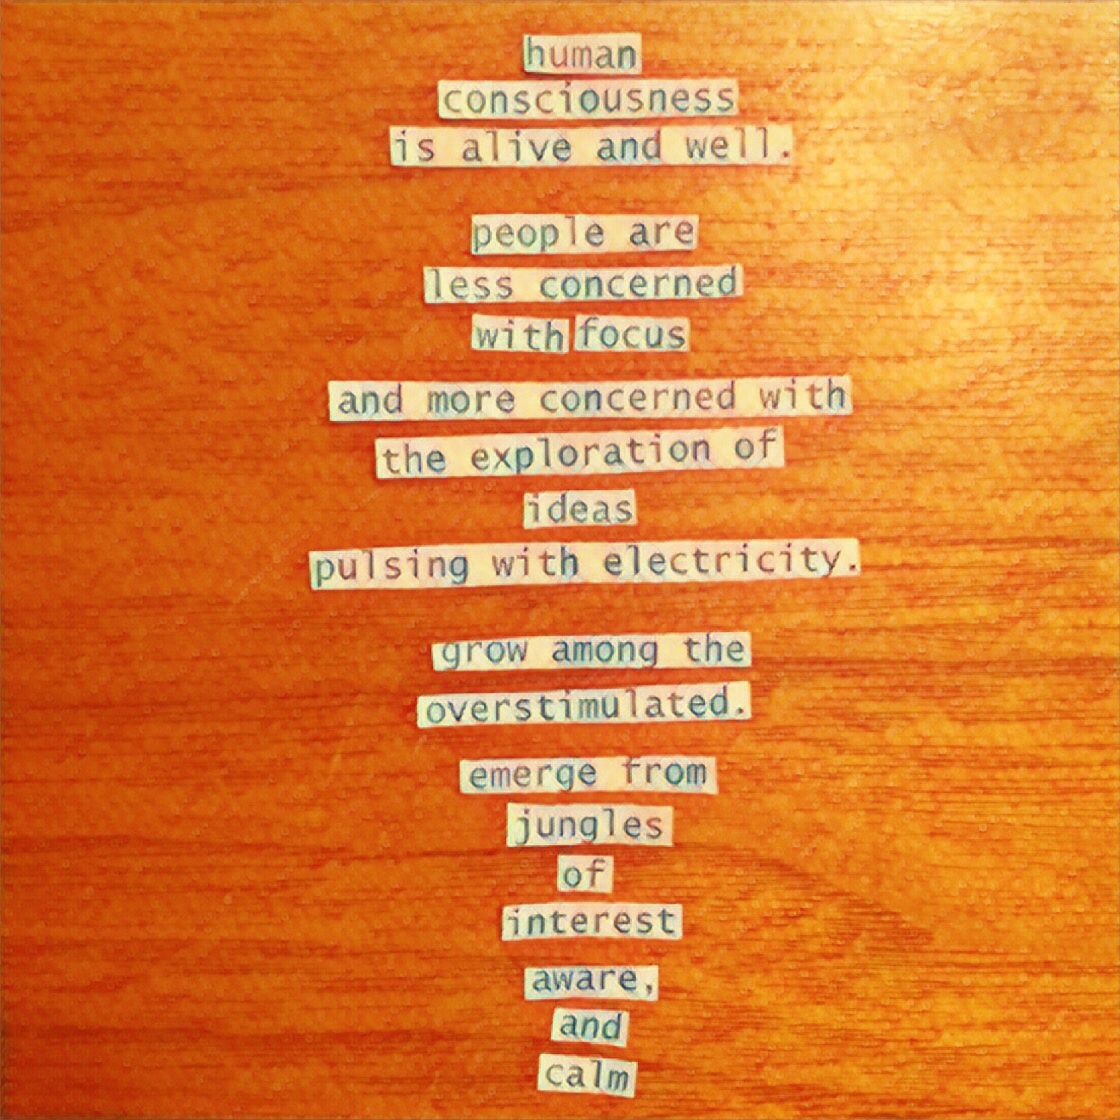 human
consciousness
is alive and well.
people are
less concerned
with focus
and more concerned with
the exploration of
ideas
pulsing with electricity.
grow among the
overstimulated.
emerge from
jungles
of
interest
aware,
and
calm